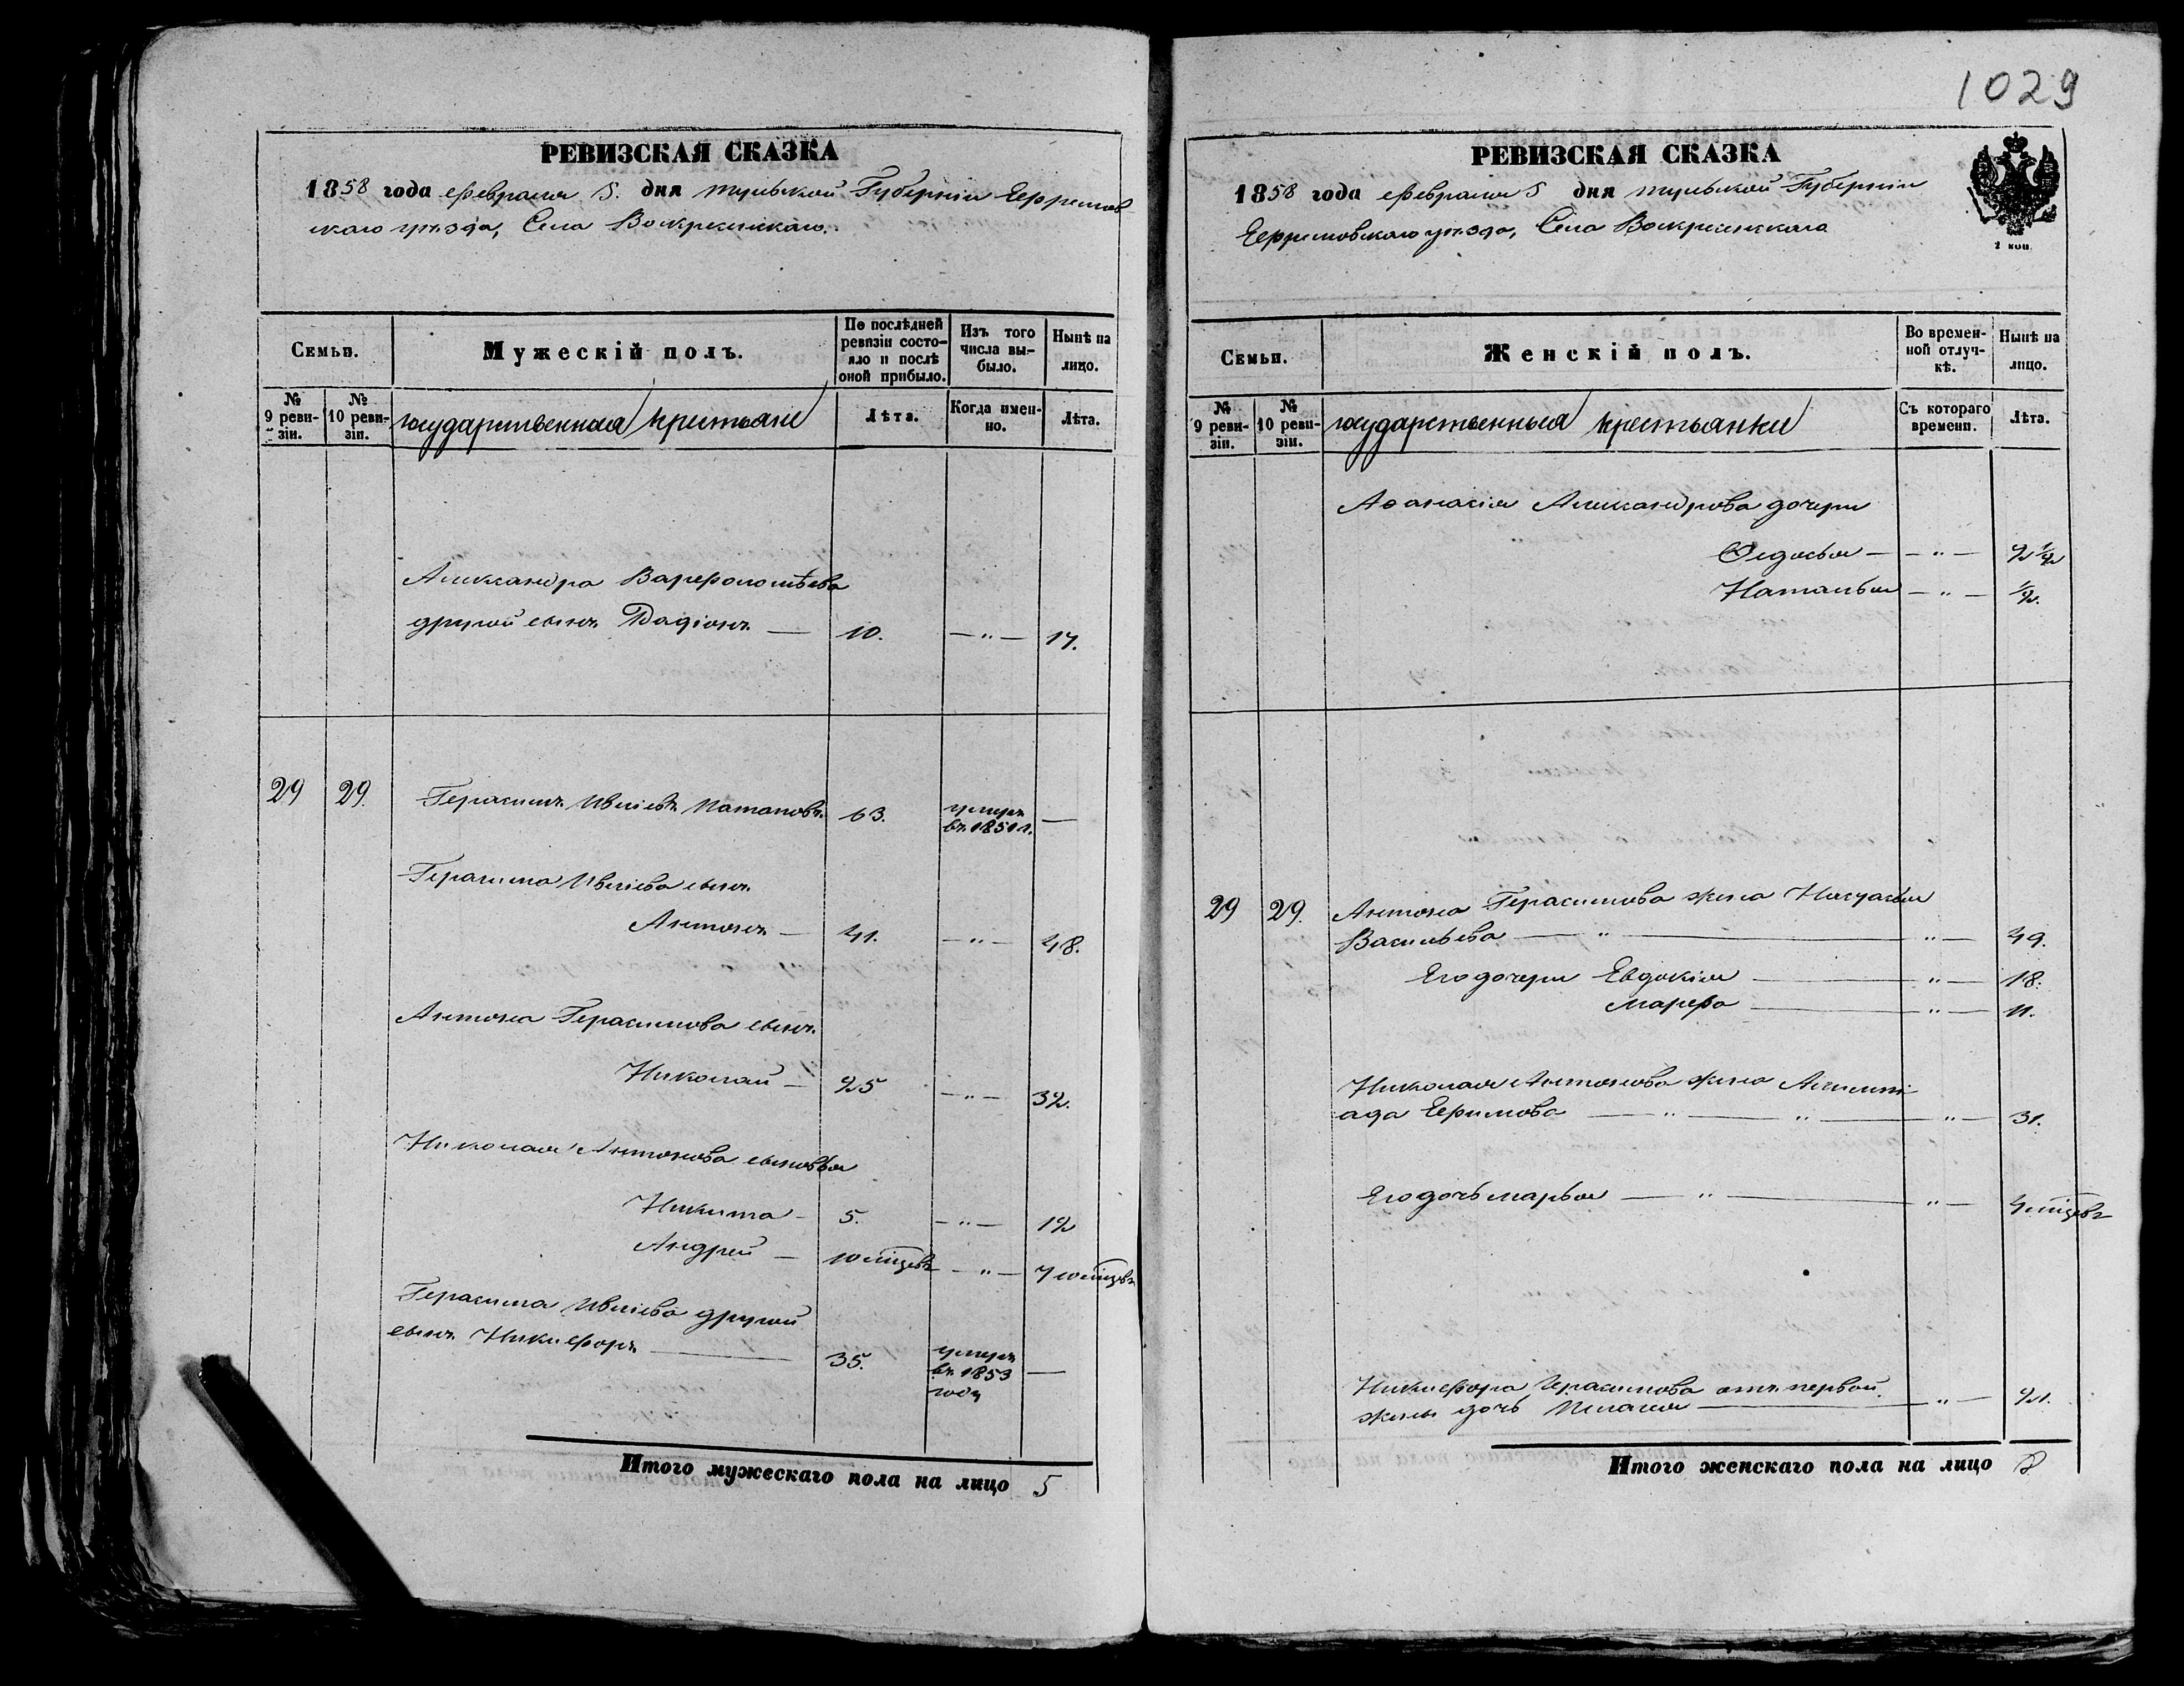 1029
РЕВИЗСКАЯ СКАЗКА
1858 года февраля 5. дня тульской Губерніи Ефремов
скаго уѣзда, Села Воскресенскаго.
Семьи.
Мужескій полъ.
По послѣдней ревизіи состояло и послѣ оной прибыло.
Изъ того числа выбыло.
Нынѣ на лицо.
№ 9 ревизіи.
№ 10 ревизіи.
государственныя крестьяне
Лѣта.
Когда именно.
Лѣта.
Александра Варфоломѣева
другой сынъ Радіонъ — 10. — „ — 17.
29 29. Герасимъ Ивліевъ Патаповъ. 63. умеръ въ 1851 г. —
Герасима Ивліева сынъ
Антонъ — 41. — „ — 48.
Антона Герасимова сынъ
Николай — 25 — „ — 32.
Николая Антонова сыновья
Никита — 5. — „ — 12
Андрей — 10 мѣцевъ — „ — 7 10 мѣцевъ
Герасима Ивліева другой
сынъ Никифоръ — 35. умеръ въ 1853 году —
Итого мужескаго пола на лицо 5
РЕВИЗСКАЯ СКАЗКА
1858 года февраля 5 дня тульской Губерніи
Ефремовскаго уѣзда, Села Воскресенскаго
2 коп.
Семьи.
Женскій полъ.
Во временной отлучкѣ.
Нынѣ на лицо.
№ 9 ревизіи.
№ 10 ревизіи.
государственныя крестьянки
Съ котораго времени.
Лѣта.
Аѳанасія Александрова дочери
Ѳедосья — — „ — 2 1/2
Наталья — „ — 1/2.
29 29. Антона Герасимова жена Настасья
Васильева — „ — „ — 49.
Его дочери Евдокія — „ — 18.
Марфа — „ — 11.
Николая Антонова жена
ада Ефимова — „ — „ — „ — 31.
Его дочь Марья — „ — „ — 4 мѣцевъ
Никифора Герасимова отъ первой
жены дочь Пелагея — „ — 21.
Итого женскаго пола на лицо 8